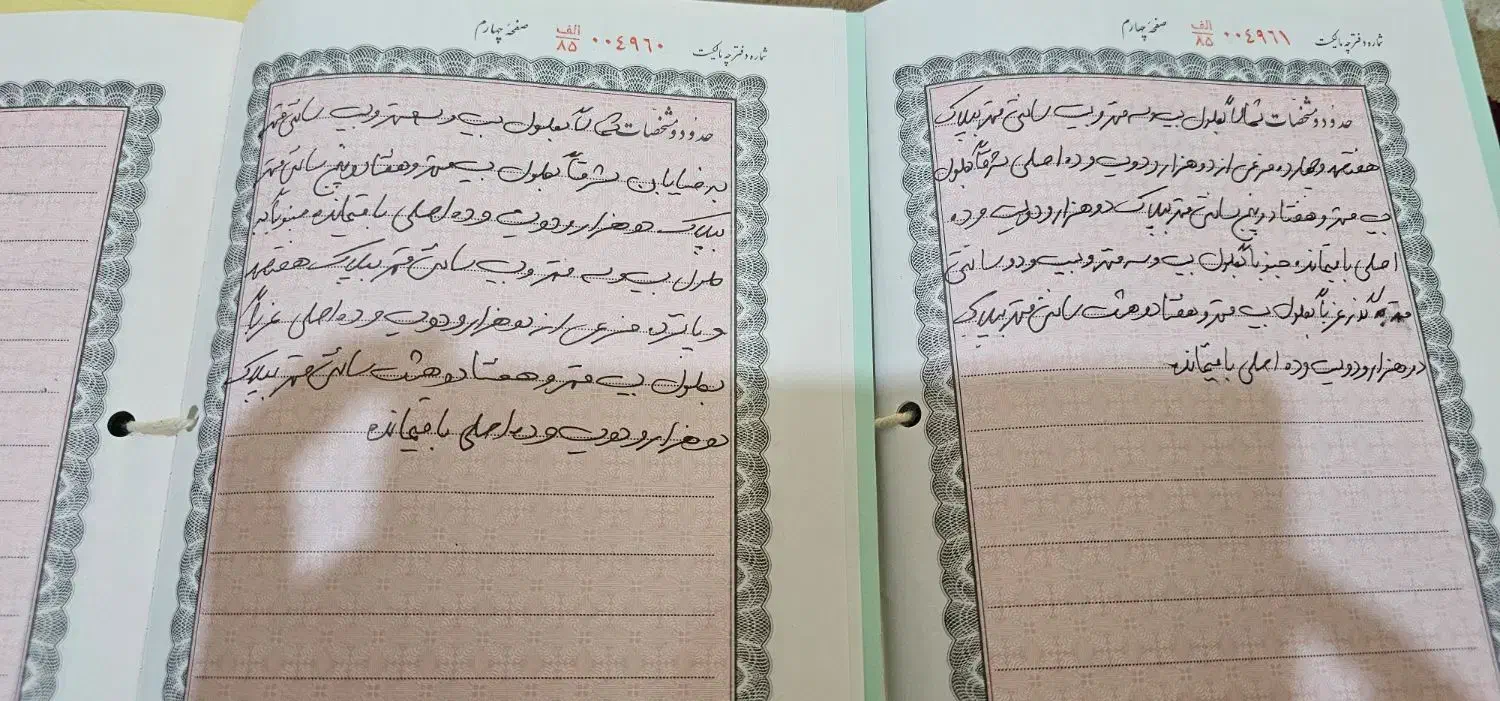 شماره دفترچه مالکیت ۰۰٤٩٦٠ الف/٨٥ صفحهٔ چهارم
حدود و مشخصات شمالاً بطول بیست و سه متر و بیست سانتی متر
به خیابان شرقاً بطول بیست متر و هفتاد و پنج سانتی متر
بپلاک دو هزار و دویست و ده اصلی باقیمانده جنوباً به
طول بیست و سه متر و بیست سانتی متر بپلاک هفتصد
و پانزده فرعی از دو هزار و دویست و ده اصلی غرباً
بطول بیست متر و هفتاد و هشت سانتی متر بپلاک
دو هزار و دویست و ده اصلی باقیمانده
شماره دفترچه مالکیت ۰۰٤٩٦١ الف/٨٥ صفحهٔ چهارم
حدود و مشخصات شمالاً بطول بیست و سه متر و بیست سانتی متر بپلاک
هفتصد و چهارده فرعی از دو هزار و دویست و ده اصلی شرقاً بطول
بیست متر و هفتاد و پنج سانتی متر بپلاک دو هزار و دویست و ده
اصلی باقیمانده جنوباً بطول بیست و سه متر و بیست و دو سانتی
متر به گذر غرباً بطول بیست متر و هفتاد و هشت سانتی متر بپلاک
دو هزار و دویست و ده اصلی باقیمانده